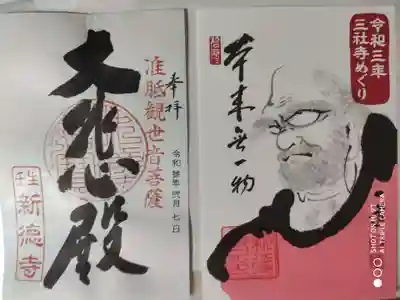 奉拝
准胝観世音菩薩
大悲心殿
令和参年弐月七日
新徳寺
令和三年
三社寺めぐり
本来無一物
SHOT ON MI 9T
AI TRIPLE CAMERA